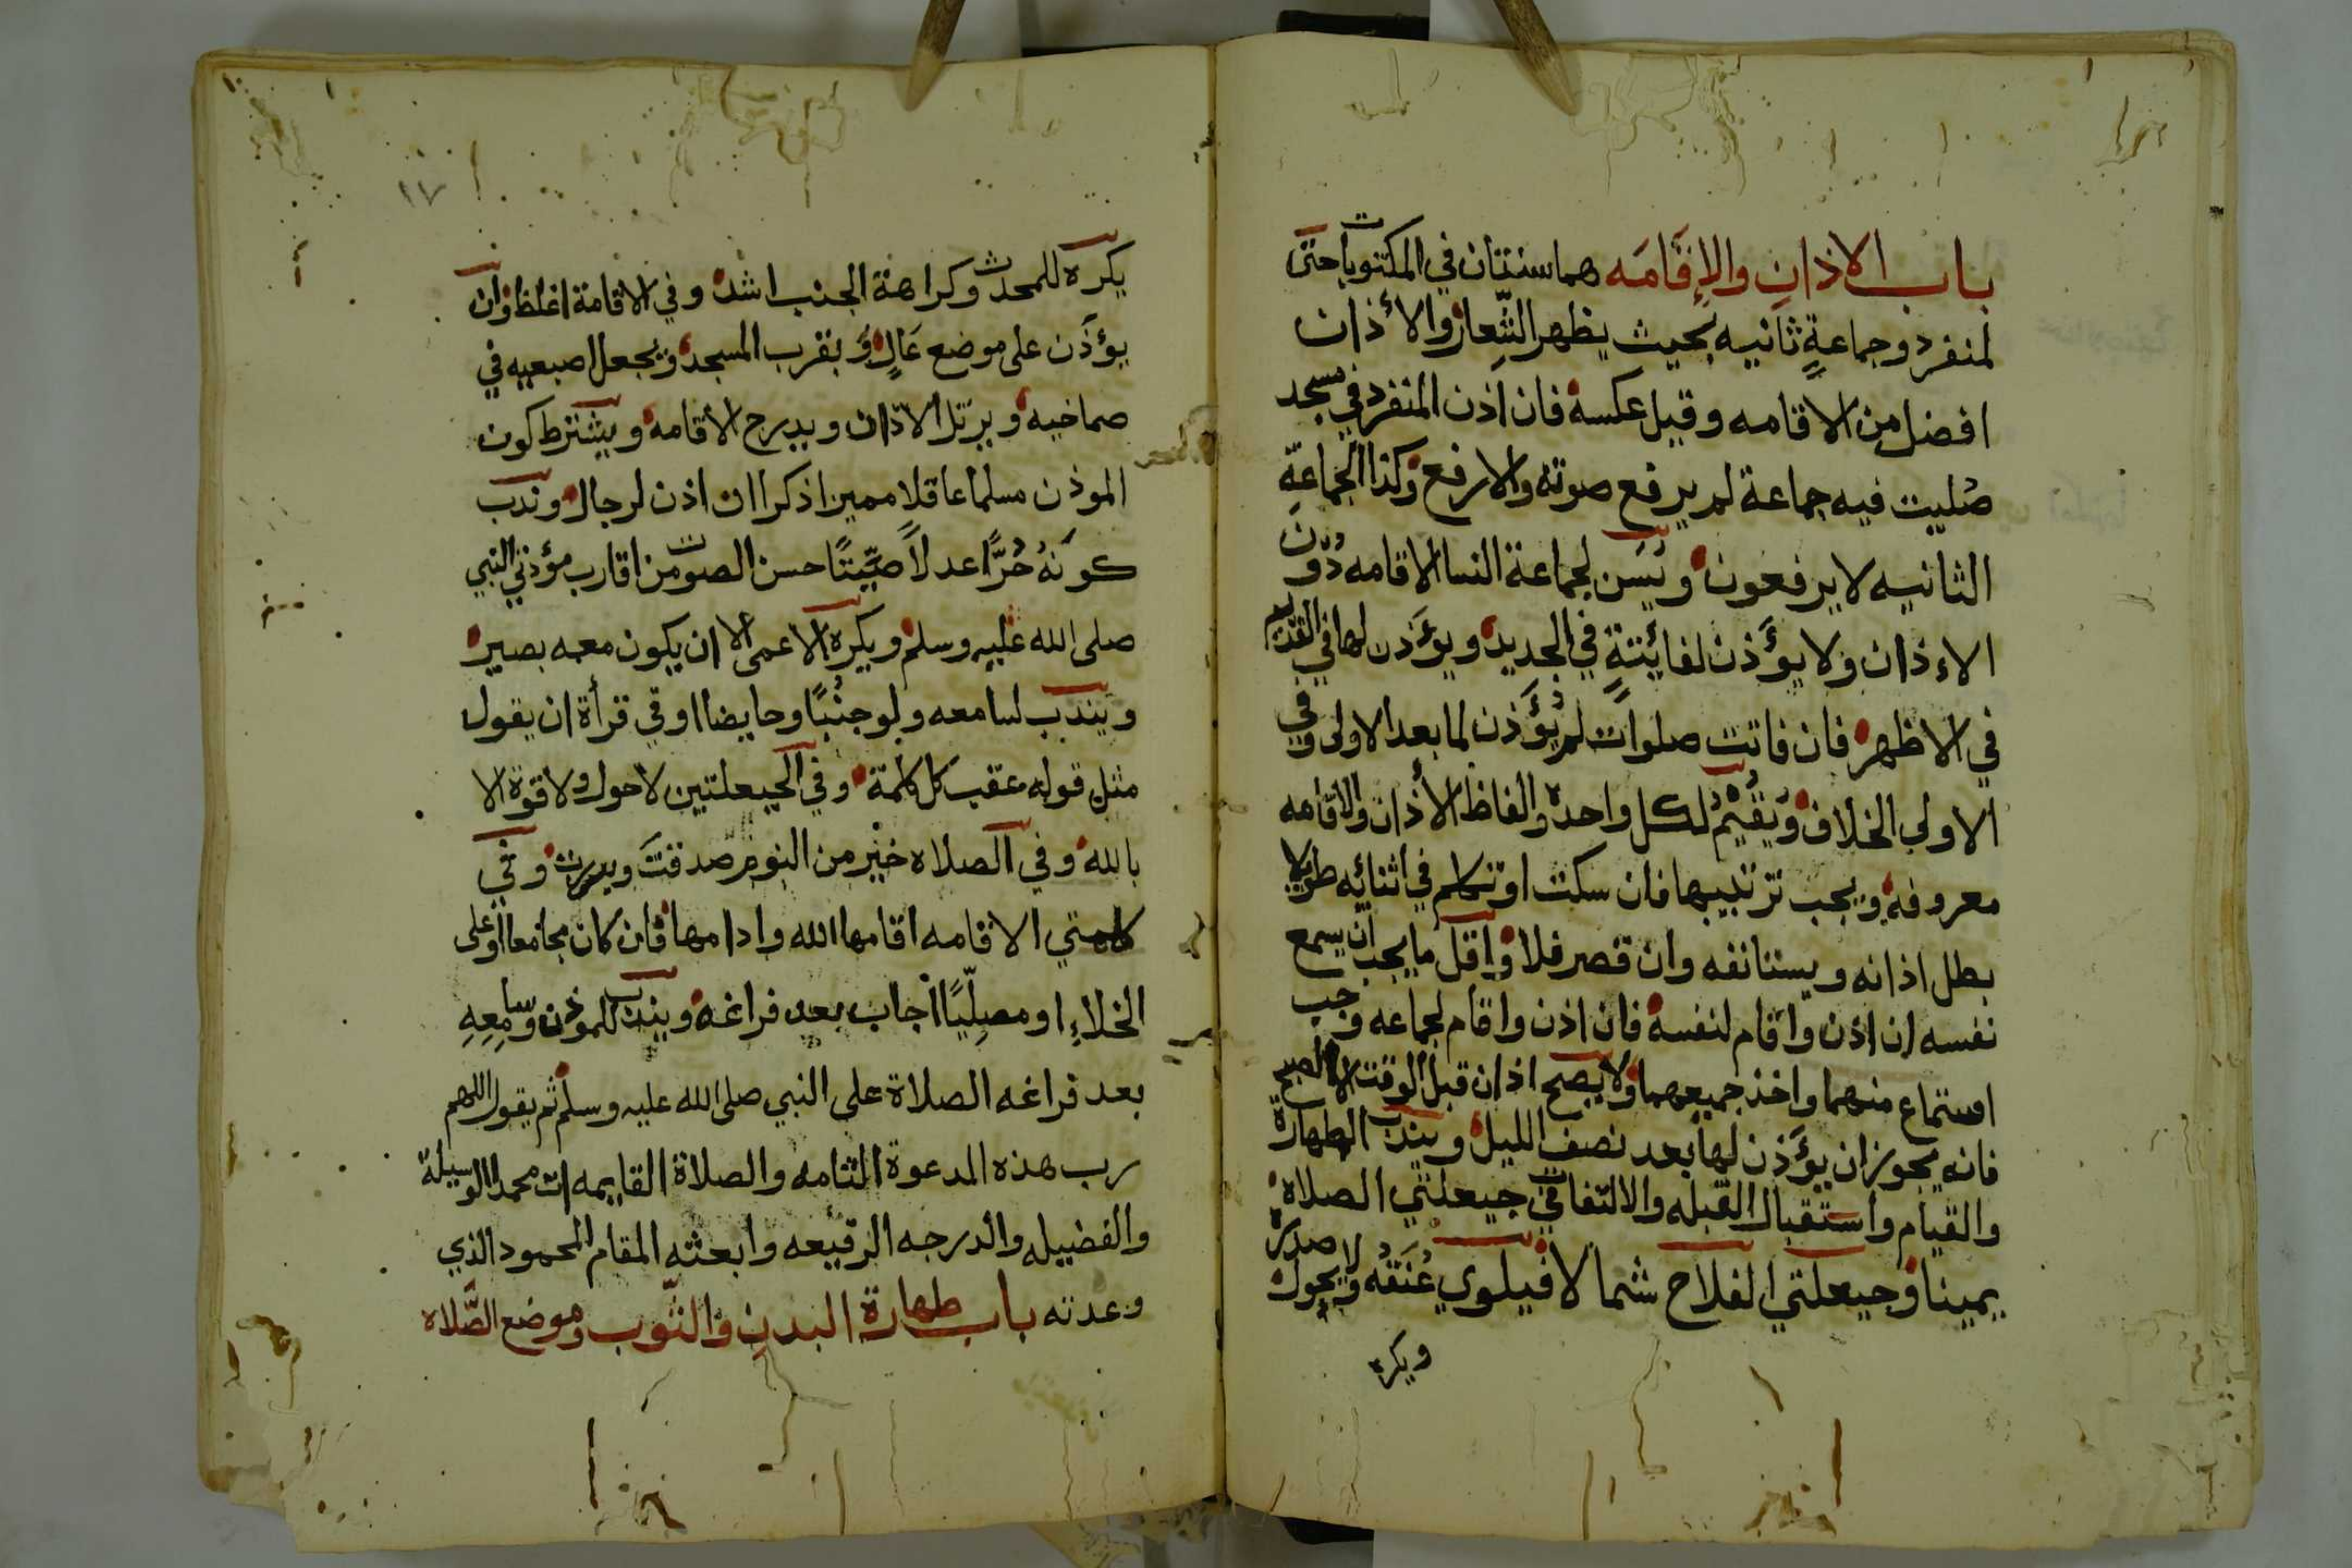 باب الاذان والإقامه هما سنتان في المكتوبات حتى
لمنفرد وجماعةٍ ثانيه بحيث يظهر الشعار والأذان
افضل من الاقامه وقيل عكسه فان اذن المنفرد في مسجد
صُليت فيه جماعة لم يرفع صوته والا رفع وكذا الجماعة
الثانيه لا يرفعون ويُسَن لجماعة النسا الاقامه دُون
الاءذان ولا يؤَذن لفائيتةٍ في الجديد ويؤذن لها في القديم
في الاظهر فان فاتت صلوات لم يُؤَذن لما بعد الاولى وفي
الاولى الخلاف ويُقيم لكل واحده والفاظ الأذان والاقامه
معروفه ويجب ترتيبها فان سكت او تكلم في اثنائه طويلا
بطل اذانه ويستانفه وان قصر فلا واقل ما يجب ان يسمع
نفسه ان اذن واقام لنفسه فان اذن واقام لجماعه وجب
استماع منهما واخذ جميعهما ولا يصح اذان قبل الوقت الا الصبح
فانه يجوز ان يؤَذن لها بعد نصف الليل ويندب الطهارة
والقيام واستقبال القبله والالتفات في حيعلتي الصلاة
يمينا وحيعلتي الفلاح شمالا فيلوي عُنَقُه ولا يحول صدره
ويكره
١٧
يكره للمحدث وكراهة الجنب اشد وفي الاقامة اغلظ وان
يؤذَن على موضع عَالٍ وَبقرب المسجد ويجعل اصبعيه في
صماخيه ويرتل الاذان ويدرج الأقامه ويشترط كون
الموذن مسلما عاقلا مميزا ذكرا ان اذن لرجال وندب
كونهُ حُرًّا عدلاً صَيِّتًا حسن الصوت من اقارب مؤذني النبي
صلى الله عليه وسلم ويكره الاعمى الا ان يكون معه بصير
ويندب لسامعه ولو جنُبًا وحايضا او في قرأة ان يقول
مثل قوله عقب كل كلمة وفي الحيعلتين لا حول ولا قوة الا
بالله وفي الصلاه خيْر من النوم صدقتَ وبررت وفي
كلمتي الاقامه اقامها الله وادامها فان كان مجامعا او على
الخلاءِ او مصلِّيًا أجاب بعد فراغه ويندب للموذن وسامِعِهِ
بعد فراغه الصلاة على النبي صلى الله عليه وسلم ثم يقول اللهم
رب هذه الدعوة التامه والصلاة القايمه ات محمدا الوسيلة
والفضيله والدرجه الرفيعه وابعثه المقام المحمود الذي
وعدته باب طهارة البدن والثوب وموضع الصَّلاه